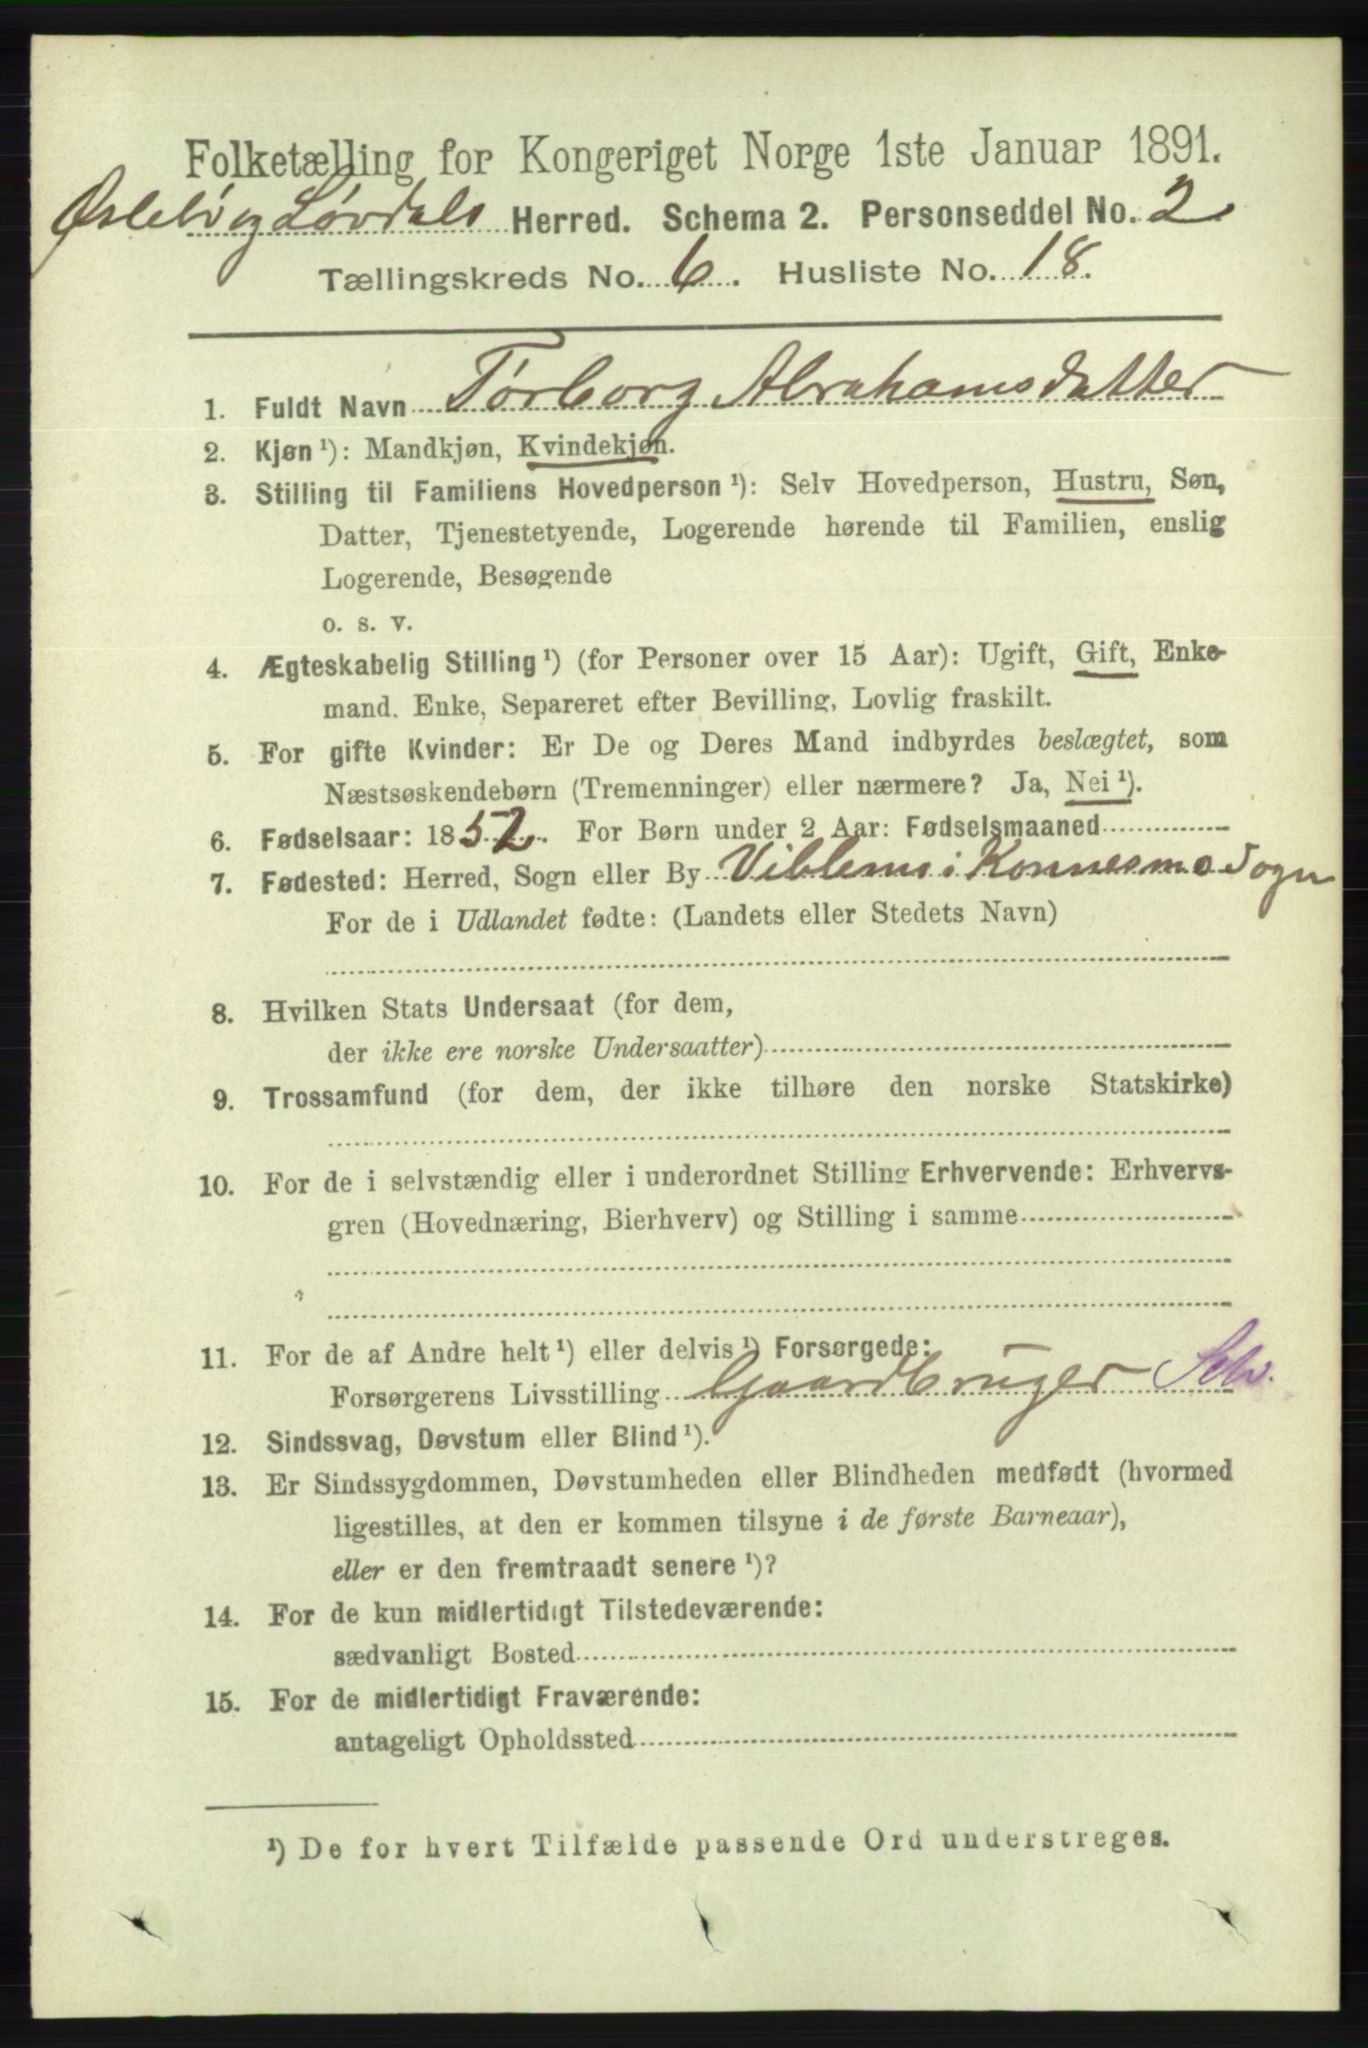 Folketælling for Kongeriget Norge 1ste Januar 1891.
Øslebø og Løvdals Herred. Schema 2. Personseddel No. 2
Tællingskreds No. 6. Husliste No. 18.
1. Fuldt Navn Torborg Abrahamsdatter
2. Kjøn ¹): Mandkjøn, Kvindekjøn.
3. Stilling til Familiens Hovedperson ¹): Selv Hovedperson, Hustru, Søn,
Datter, Tjenestetyende, Logerende hørende til Familien, enslig
Logerende, Besøgende
o. s. v.
4. Ægteskabelig Stilling ¹) (for Personer over 15 Aar): Ugift, Gift, Enke-
mand. Enke, Separeret efter Bevilling, Lovlig fraskilt.
5. For gifte Kvinder: Er De og Deres Mand indbyrdes beslægtet, som
Næstsøskendebørn (Tremenninger) eller nærmere? Ja, Nei ¹).
6. Fødselsaar: 1852. For Børn under 2 Aar: Fødselsmaaned
7. Fødested: Herred, Sogn eller By Viblems i Konnesmo Sogn
For de i Udlandet fødte: (Landets eller Stedets Navn)
8. Hvilken Stats Undersaat (for dem,
der ikke ere norske Undersaatter)
9. Trossamfund (for dem, der ikke tilhøre den norske Statskirke)
10. For de i selvstændig eller i underordnet Stilling Erhvervende: Erhvervs-
gren (Hovednæring, Bierhverv) og Stilling i samme
11. For de af Andre helt ¹) eller delvis ¹) Forsørgede:
Forsørgerens Livsstilling Gaardbruger Selv.
12. Sindssvag, Døvstum eller Blind ¹).
13. Er Sindssygdommen, Døvstumheden eller Blindheden medfødt (hvormed
ligestilles, at den er kommen tilsyne i de første Barneaar),
eller er den fremtraadt senere ¹)?
14. For de kun midlertidigt Tilstedeværende:
sædvanligt Bosted
15. For de midlertidigt Fraværende:
antageligt Opholdssted
¹) De for hvert Tilfælde passende Ord understreges.